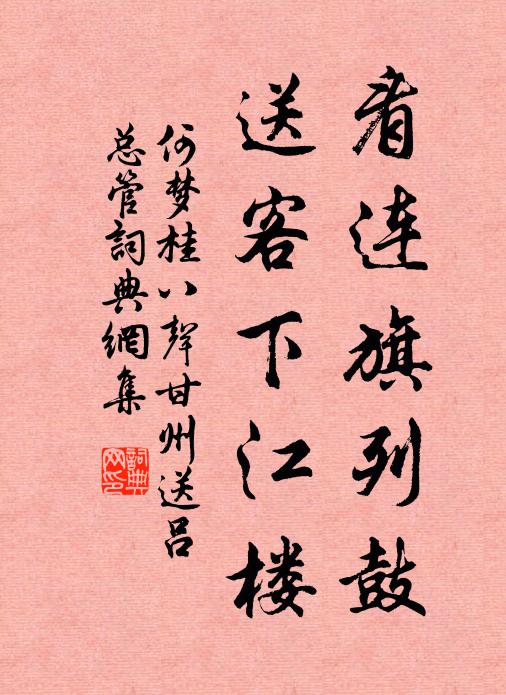 看连旗列鼓
送客下江楼
何梦桂八声甘州送吕
总管词典網集
詞典網印